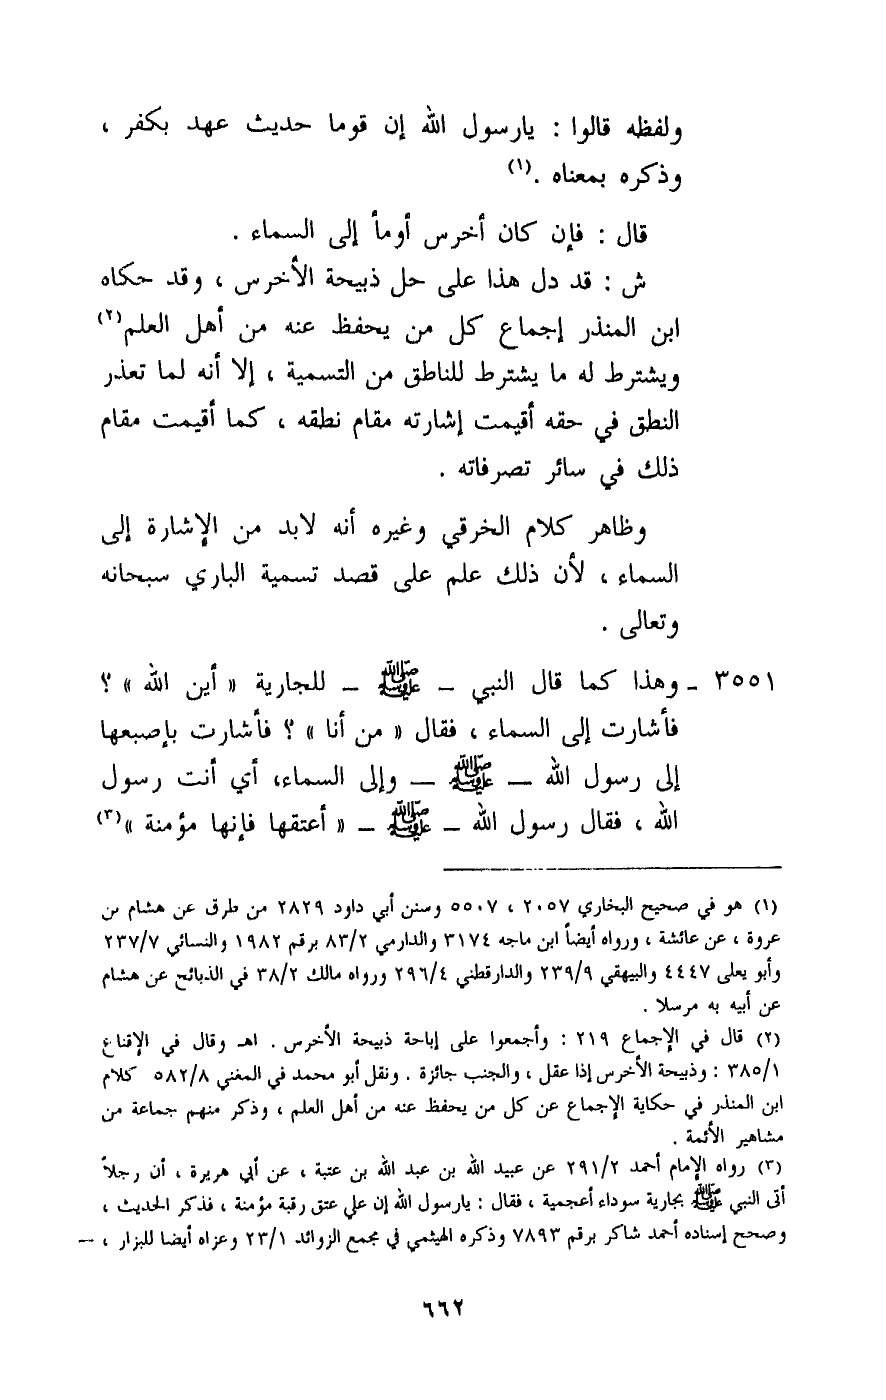 ولفظه قالوا : يارسول الله إن قوما حديث عهد بكفر ،
وذكره بمعناه .(١)
قال : فإن كان أخرس أومأ إلى السماء .
ش : قد دل هذا على حل ذبيحة الأخرس ، وقد حكاه
ابن المنذر إجماع كل من يحفظ عنه من أهل العلم(٢)
ويشترط له ما يشترط للناطق من التسمية ، إلا أنه لما تعذر
النطق في حقه أقيمت إشارته مقام نطقه ، كما أقيمت مقام
ذلك في سائر تصرفاته .
وظاهر كلام الخرقي وغيره أنه لابد من الإشارة إلى
السماء ، لأن ذلك علم على قصد تسمية الباري سبحانه
وتعالى .
٣٥٥١ ـ وهذا كما قال النبي ـ ﷺ ـ للجارية « أين الله » ؟
فأشارت إلى السماء ، فقال « من أنا » ؟ فأشارت بإصبعها
إلى رسول الله ـ ﷺ ـ وإلى السماء، أي أنت رسول
الله ، فقال رسول الله ـ ﷺ ـ « أعتقها فإنها مؤمنة »(٣)
(١) هو في صحيح البخاري ٢٠٥٧ ، ٥٥٠٧ وسنن أبي داود ٢٨٢٩ من طرق عن هشام بن
عروة ، عن عائشة ، ورواه أيضاً ابن ماجه ٣١٧٤ والدارمي ٨٣/٢ برقم ١٩٨٢ والنسائي ٢٣٧/٧
وأبو يعلى ٤٤٤٧ والبيهقي ٢٣٩/٩ والدارقطني ٢٩٦/٤ ورواه مالك ٣٨/٢ في الذبائح عن هشام
عن أبيه به مرسلا .
(٢) قال في الإجماع ٢١٩ : وأجمعوا على إباحة ذبيحة الأخرس . اهـ وقال في الإقناع
٣٨٥/١ : وذبيحة الأخرس إذا عقل ، والجنب جائزة . ونقل أبو محمد في المغني ٥٨٢/٨ كلام
ابن المنذر في حكاية الإجماع عن كل من يحفظ عنه من أهل العلم ، وذكر منهم جماعة من
مشاهير الأئمة .
(٣) رواه الإمام أحمد ٢٩١/٢ عن عبيد الله بن عبد الله بن عتبة ، عن أبي هريرة ، أن رجلاً
أتى النبي ﷺ بجارية سوداء أعجمية ، فقال : يارسول الله إن علي عتق رقبة مؤمنة ، فذكر الحديث ،
وصحح إسناده أحمد شاكر برقم ٧٨٩٣ وذكره الهيثمي في مجمع الزوائد ٢٣/١ وعزاه أيضا للبزار ، ـ
٦٦٢